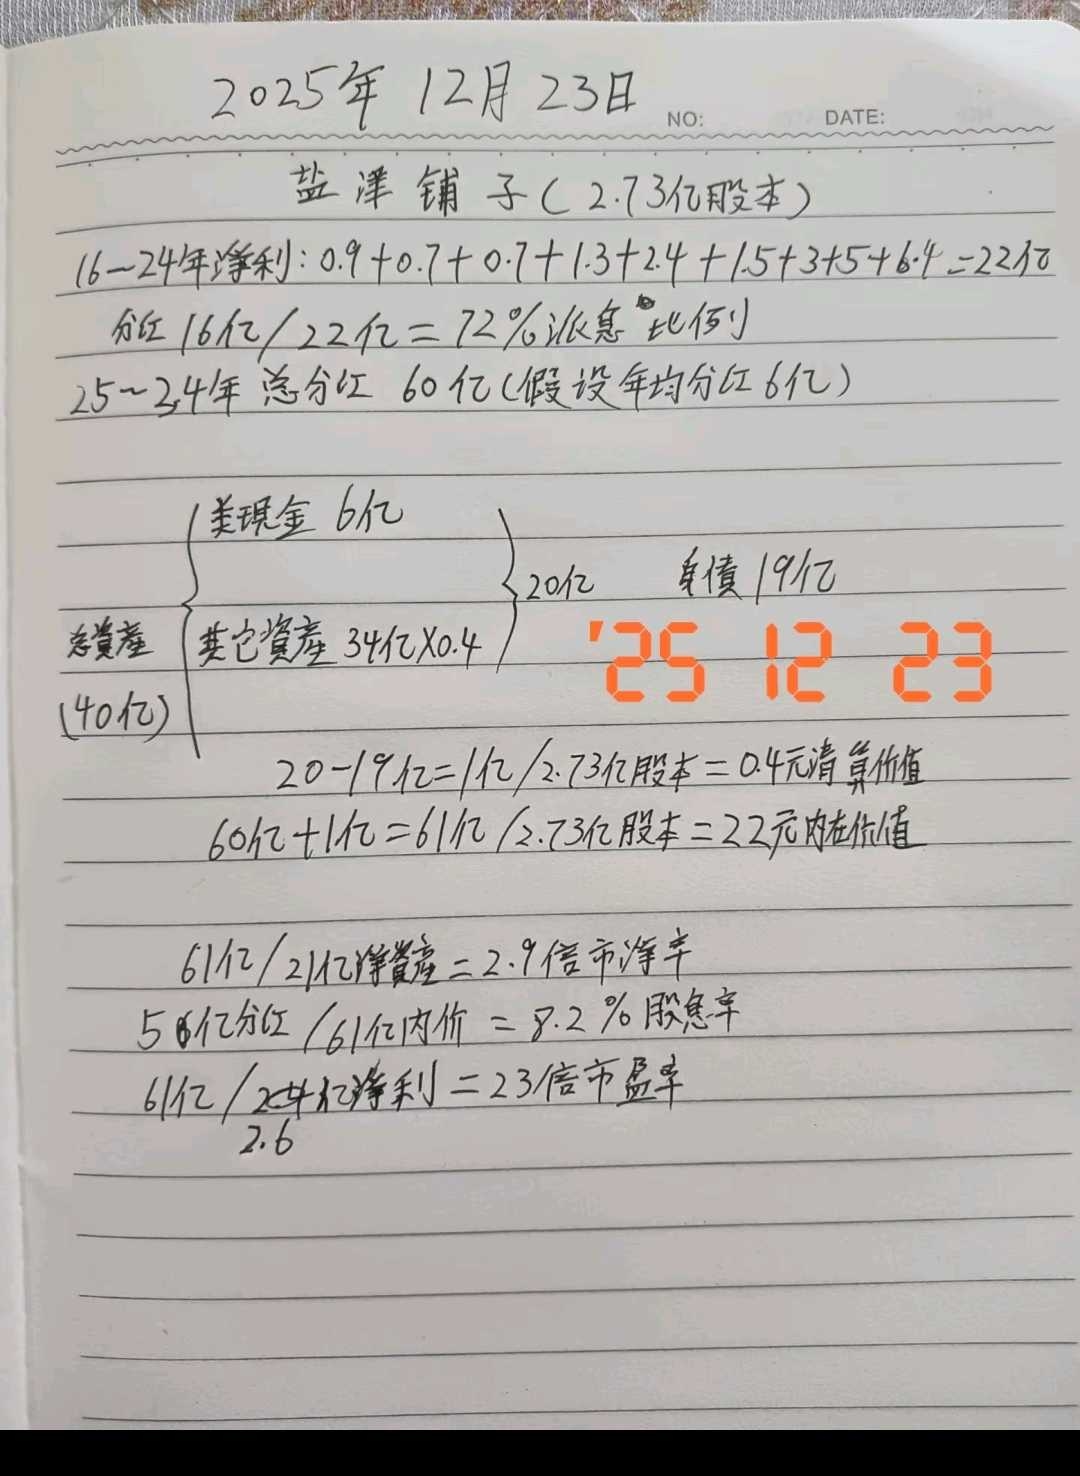 2025年 12月 23日
NO: DATE:
盐津铺子(2.73亿股本)
16~24年净利:0.9+0.7+0.7+1.3+2.4+1.5+3+5+6.4=22亿
分红16亿/22亿=72%派息比例
25~34年总分红 60亿(假设年均分红6亿)
类現金 6亿
20亿 負債19亿
总資產 其它資產 34亿X0.4
'25 12 23
(40亿)
20-19亿=1亿/2.73亿股本=0.4元清算价值
60亿+1亿=61亿/2.73亿股本=22元内在价值
61亿/21亿净資產=2.9倍市净率
5亿分红/61亿内价=8.2%股息率
61亿/亿净利=23倍市盈率
2.6